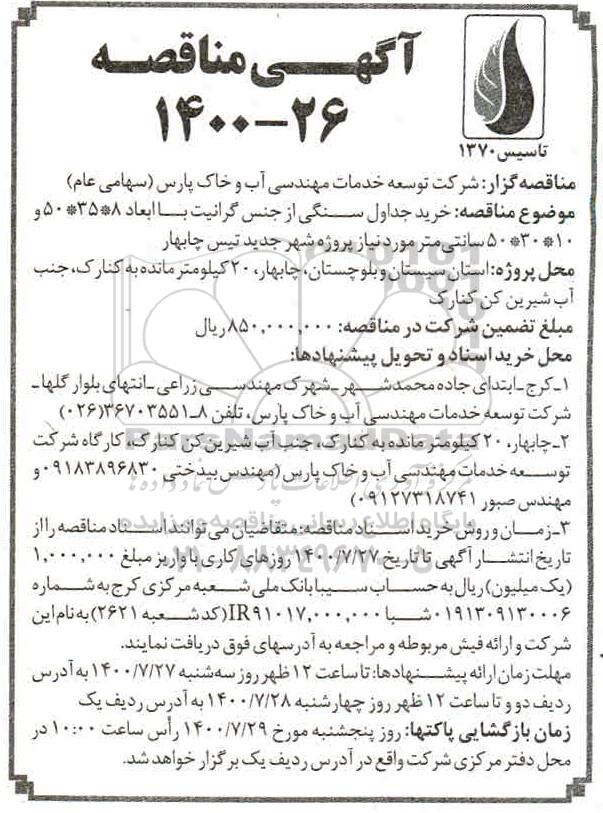 آگهی مناقصه
۱۴۰۰-۲۶
تاسیس ۱۳۷۰
مناقصه گزار: شرکت توسعه خدمات مهندسی آب و خاک پارس (سهامی عام)
موضوع مناقصه: خرید جداول سنگی از جنس گرانیت با ابعاد ۸*۳۵*۵۰ و
۱۰*۳۰*۵۰ سانتی متر مورد نیاز پروژه شهر جدید تیس چابهار
محل پروژه: استان سیستان و بلوچستان، چابهار، ۲۰ کیلومتر مانده به کنارک، جنب
آب شیرین کن کنارک
مبلغ تضمین شرکت در مناقصه: ۸۵۰,۰۰۰,۰۰۰ ریال
محل خرید اسناد و تحویل پیشنهادها:
۱ـ کرج ـ ابتدای جاده محمدشهر ـ شهرک مهندسی زراعی ـ انتهای بلوار گلها ـ
شرکت توسعه خدمات مهندسی آب و خاک پارس، تلفن ۸ـ۳۶۷۰۳۵۵۱(۰۲۶)
۲ـ چابهار، ۲۰ کیلومتر مانده به کنارک، جنب آب شیرین کن کنارک، کارگاه شرکت
توسعه خدمات مهندسی آب و خاک پارس (مهندس بیدختی ۰۹۱۸۳۸۹۶۸۳۰ و
مهندس صبور ۰۹۱۲۷۳۱۸۷۴۱)
۳ـ زمان و روش خرید اسناد مناقصه: متقاضیان می توانند اسناد مناقصه را از
تاریخ انتشار آگهی تا تاریخ ۱۴۰۰/۷/۲۷ روزهای کاری با واریز مبلغ ۱,۰۰۰,۰۰۰
(یک میلیون) ریال به حساب سیبا بانک ملی شعبه مرکزی کرج به شماره
۰۱۹۱۳۰۹۱۳۰۰۰۶ شبا IR۹۱۰۱۷,۰۰۰,۰۰۰ (کد شعبه ۲۶۲۱) به نام این
شرکت و ارائه فیش مربوطه و مراجعه به آدرسهای فوق دریافت نمایند.
مهلت زمان ارائه پیشنهادها: تا ساعت ۱۲ ظهر روز سه شنبه ۱۴۰۰/۷/۲۷ به آدرس
ردیف دو و تا ساعت ۱۲ ظهر روز چهارشنبه ۱۴۰۰/۷/۲۸ به آدرس ردیف یک
زمان بازگشایی پاکتها: روز پنجشنبه مورخ ۱۴۰۰/۷/۲۹ رأس ساعت ۱۰:۰۰ در
محل دفتر مرکزی شرکت واقع در آدرس ردیف یک برگزار خواهد شد.
ParsNamadData
پایگاه اطلاع رسانی مناقصه و مزایده